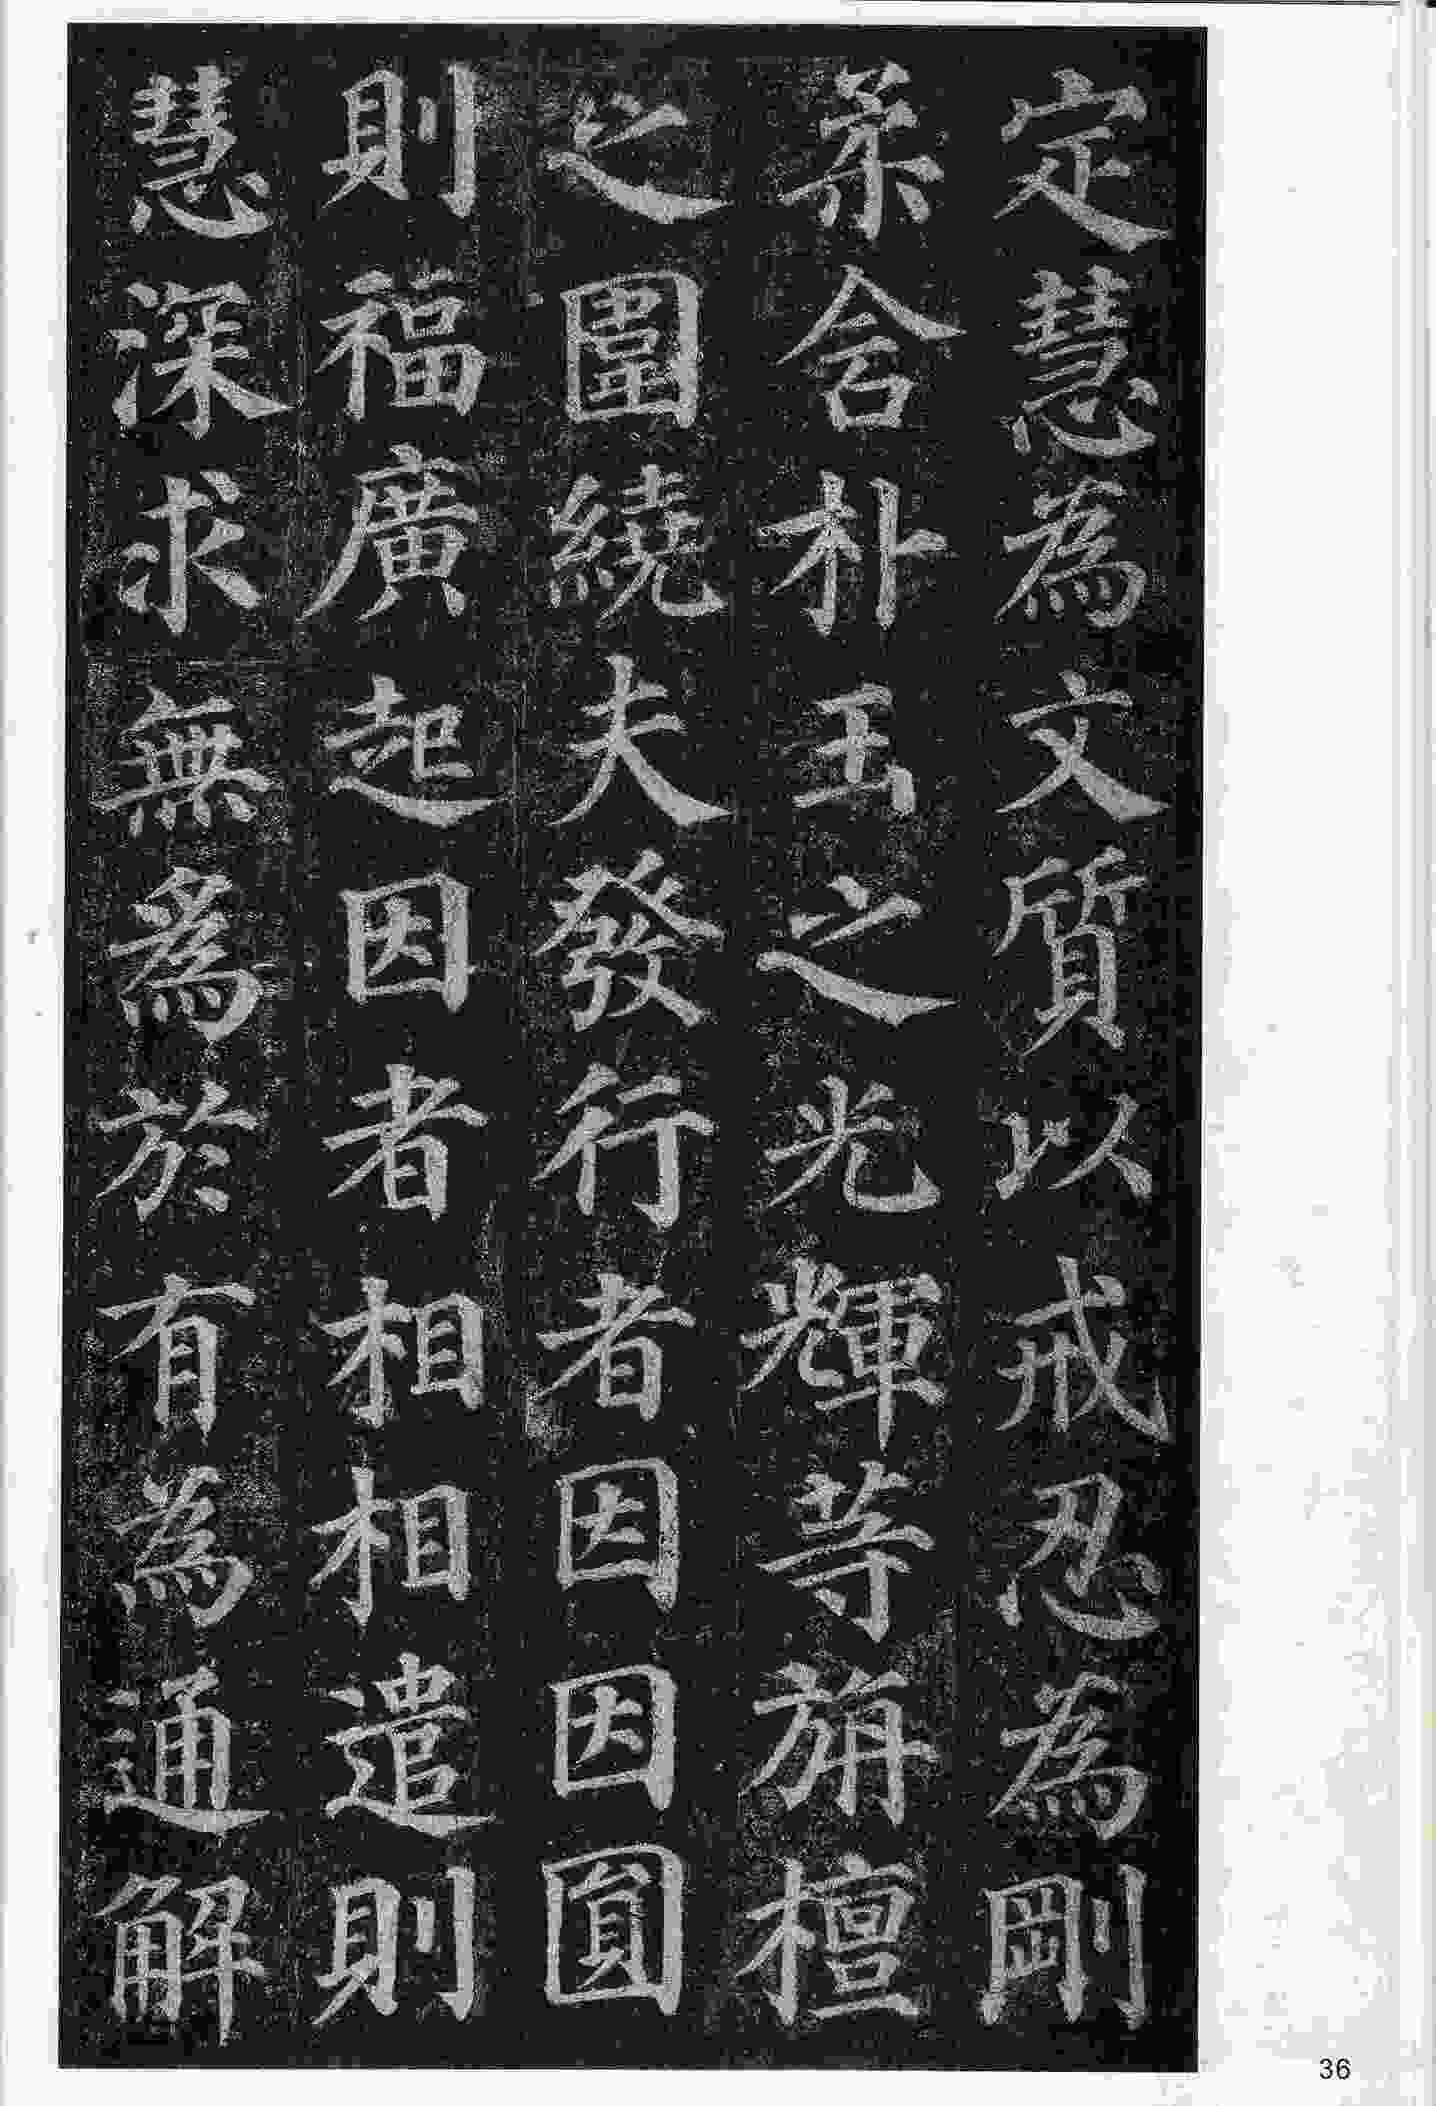 定慧為文質以戒忍為剛
柔含朴玉之光輝等旃檀
之圍繞夫發行者因因圓
則福廣起因者相相遣則
慧深求無為於有為通解
36